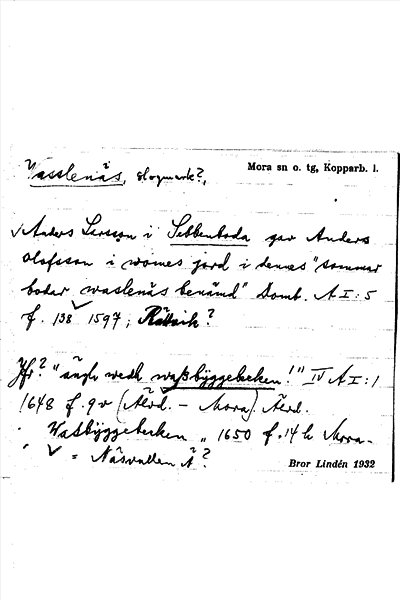 Vasslenäs, slogmark?,
Mora sn o. tg, Kopparb. l.
Anders Larsson i Sebbenboda gav Anders
Olofsson i womes jord i dennes "sommar
bodar waslenäs benämd" Domb. A I:5
f. 138 1597; Rättvik?
Jfr? "ängh wedh waßbÿggebecken!" IV A I:1
1648 f. 9v (Älvd. - Mora) Älvd.
Waßbÿggebecken „ 1650 f. 14 h Mora -
= Näsvallen Ä?
Bror Lindén 1932